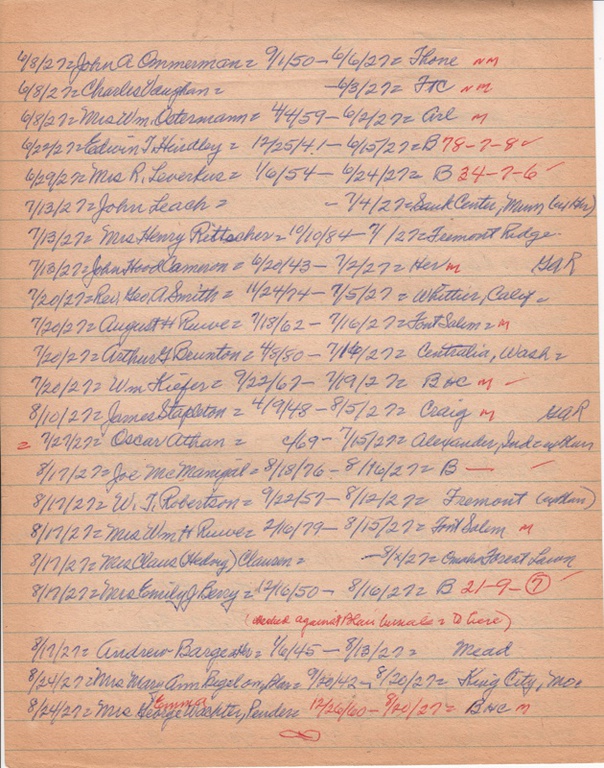 6/8/27= John A Ommerman = 9/1/50 - 6/6/27= Fhone NM
6/8/27= Charles Vaughan = - 6/3/27= FtC NM
6/8/27= Mrs Wm. Ostermann = 4/4/59 - 6/2/27= Arl M
6/22/27= Edwin T Hindley = 12/25/41 - 6/15/27= B 78-7-8 ✓
6/29/27= Mrs R. Leverkus = 1/6/54 - 6/24/27= B 34-7-6 ✓
7/13/27= John Leach = - 7/4/27= Sauk Center, Minn (ex Her)
7/13/27= Mrs Henry Rittscher = 10/10/84 - 7/ /27= Fremont Ridge
7/13/27= John Hood Cameron = 6/20/43 - 7/2/27= Her M GAR
7/20/27= Rev. Geo. A. Smith = 11/24/74 - 7/5/27 = Whittier, Calif =
7/20/27= August H Ruwe = 7/18/62 - 7/16/27= Font Salem = M
7/20/27= Arthur G Brunton = 4/8/80 - 7/16/27= Centralia, Wash =
7/20/27= Wm Kiefer = 9/22/67 - 7/19/27= BHC M ✓
8/10/27= James Stapleton = 4/9/48 - 8/5/27= Craig M GAR
= 7/27/27= Oscar Athan = c/69 - 7/15/27= Alexander, Ind =
8/17/27= Joe McManigal = 8/18/76 - 8/16/27= B — ✓
8/17/27= W. T. Robertson = 9/22/57 - 8/12/27= Fremont
8/17/27= Mrs Wm H Ruwe = 2/16/79 - 8/15/27= Font Salem M
8/17/27= Mrs Claus (Hedwig) Clausen = - 8/x/27= Omaha Forest Lawn
8/17/27= Mrs Emily J Berry = 12/16/50 - 8/16/27= B 21-9-(7) ✓
(checked against Blair burials = to here)
8/17/27= Andrew Bargeth = 1/6/45 - 8/13/27= Mead
8/24/27= Mrs Mary Ann Bigelow, = 9/20/42 - 8/20/27= King City, Mo=
8/24/27= Mrs George Emma Wachter, Pender= 12/26/60 - 8/20/27= BHC M